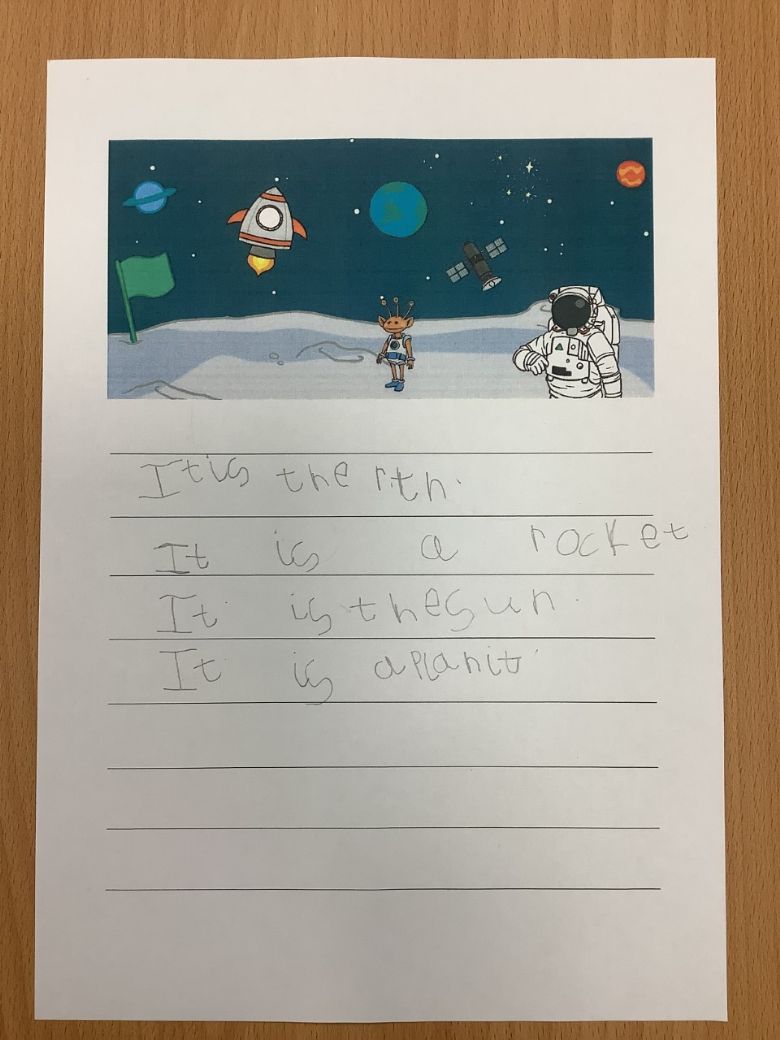 It is the rth.
It is a rocket
It is the sun.
It is a planit.